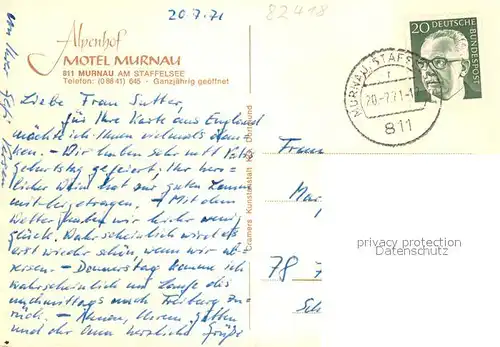 20.7.71
82418
Alpenhof
MOTEL MURNAU
811 MURNAU AM STAFFELSEE
Telefon: (08841) 645 - Ganzjährig geöffnet
20 DEUTSCHE
BUNDESPOST
MURNAU, STAFFELS
20.-7.71-1
811
Liebe Frau Sutter,
für Ihre Karte aus England
möchte ich Ihnen vielmals dan-
ken. - Wir haben sehr nett
Geburtstag gefeiert, Ihr herr-
licher Wein hat zur guten Laune
mit beigetragen. - Mit dem
Wetter haben wir leider wenig
Glück. Wahrscheinlich wird es
erst wieder schön, wenn wir ab-
reisen. - Donnerstag komme ich
wahrscheinlich im Laufe des
nachmittags nach Freiburg zu-
rück. - Ihnen, Ihrem Gatten
und der Oma herzliche Grüße
von Ihrer
Cramers Kunstanstalt KG, Dortmund
Frau
Mar
78
Sch
privacy protection
Ansichtskarten-Center